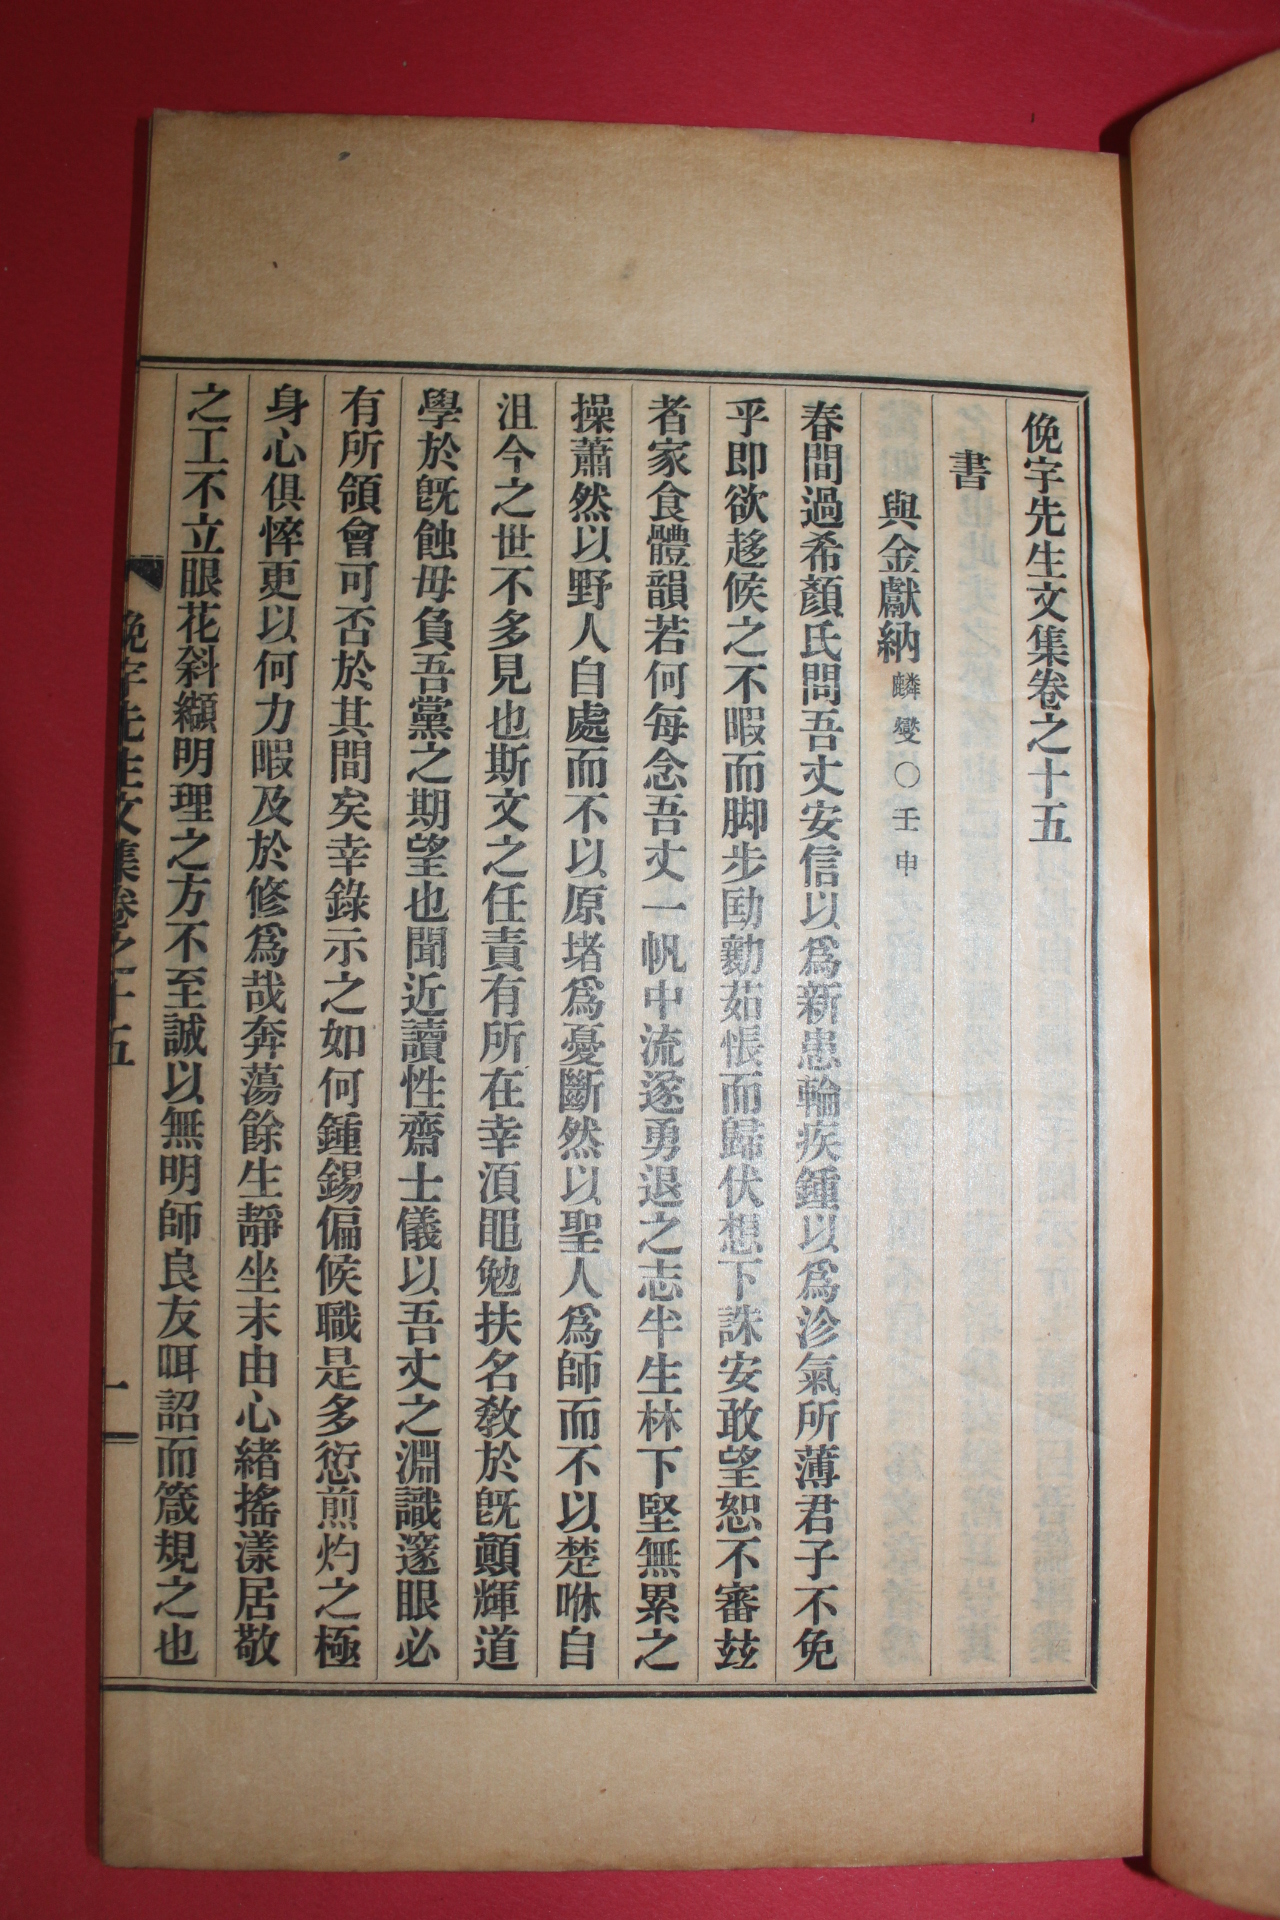 俛宇先生文集卷之十五
書
與金獻納麟燮○壬申
春間過希顏氏問吾丈安信以爲新患輪疾鍾以爲沴氣所薄君子不免
乎即欲趍候之不暇而脚步劻勷茹悵而歸伏想下誅安敢望恕不審玆
者家食體韻若何每念吾丈一帆中流遂勇退之志半生林下堅無累之
操蕭然以野人自處而不以原堵爲憂斷然以聖人爲師而不以楚咻自
沮今之世不多見也斯文之任責有所在幸須黽勉扶名敎於旣顚輝道
學於旣蝕毋負吾黨之期望也聞近讀性齋士儀以吾丈之淵識邃眼必
有所領會可否於其間矣幸錄示之如何鍾錫偏候職是多愆煎灼之極
身心俱悴更以何力暇及於修爲哉奔蕩餘生靜坐末由心緖搖漾居敬
之工不立眼花斜纈明理之方不至誠以無明師良友咡詔而箴規之也
俛宇先生文集卷之十五
一